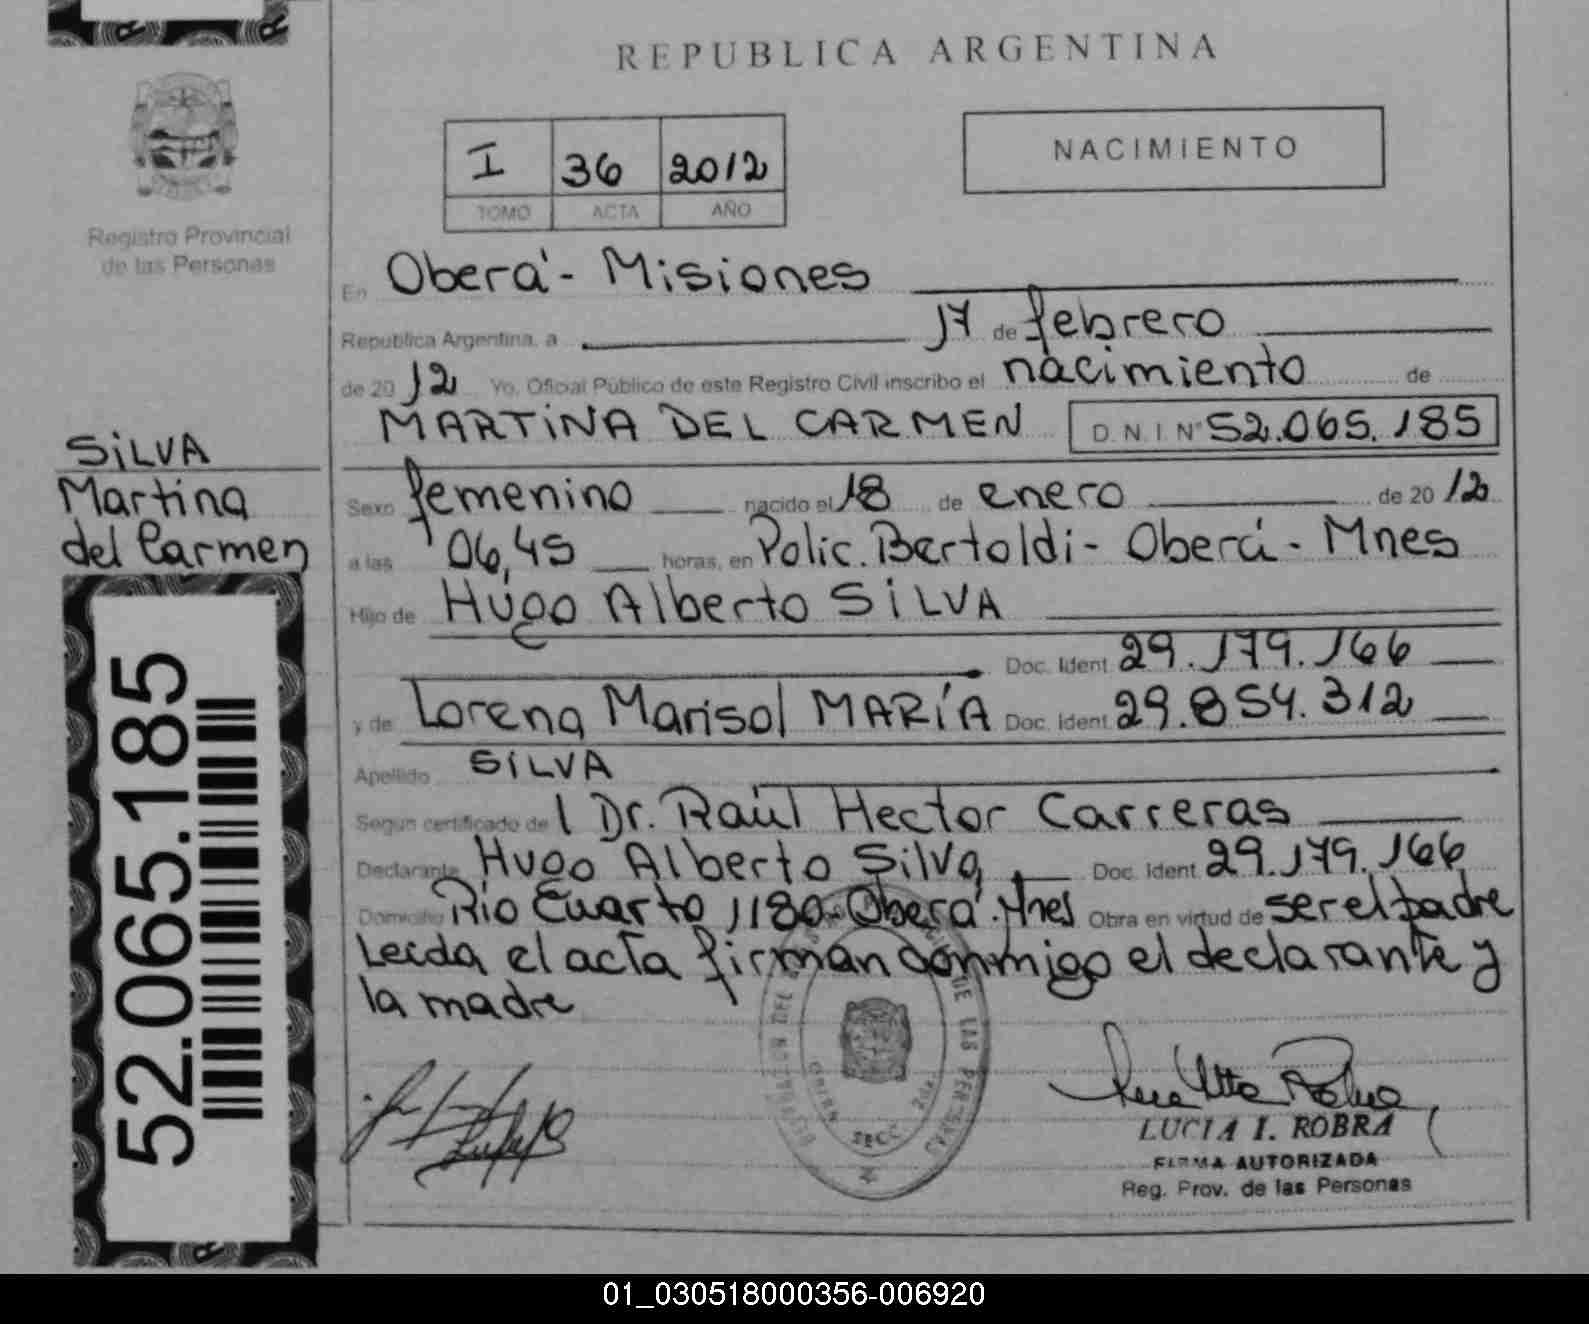 REPUBLICA ARGENTINA
I 36 2012
TOMO ACTA AÑO
NACIMIENTO
Registro Provincial
de las Personas
En Oberá - Misiones
Republica Argentina, a 17 de febrero
de 20 12 Yo, Oficial Público de este Registro Civil inscribo el nacimiento de
MARTINA DEL CARMEN D.N.I. Nº 52.065.185
SILVA
Martina
del Carmen
Sexo femenino nacido el 18 de enero de 20 12
a las 06,45 horas, en Polic. Bertoldi - Oberá - Mnes
Hijo de Hugo Alberto SILVA
Doc. Ident. 29.179.166
y de Lorena Marisol MARÍA Doc. Ident. 29.854.312
Apellido SILVA
Segun certificado de l Dr. Raúl Hector Carreras
Declarante Hugo Alberto Silva Doc. Ident. 29.179.166
Domicilio Rio Cuarto 1180 - Oberá. Mnes Obra en virtud de ser el padre
Leida el acta firman conmigo el declarante y
la madre
52.065.185
DE LAS PERSONAS
SECC
LUCIA I. ROBRA
FIRMA AUTORIZADA
Reg. Prov. de las Personas
01_030518000356-006920